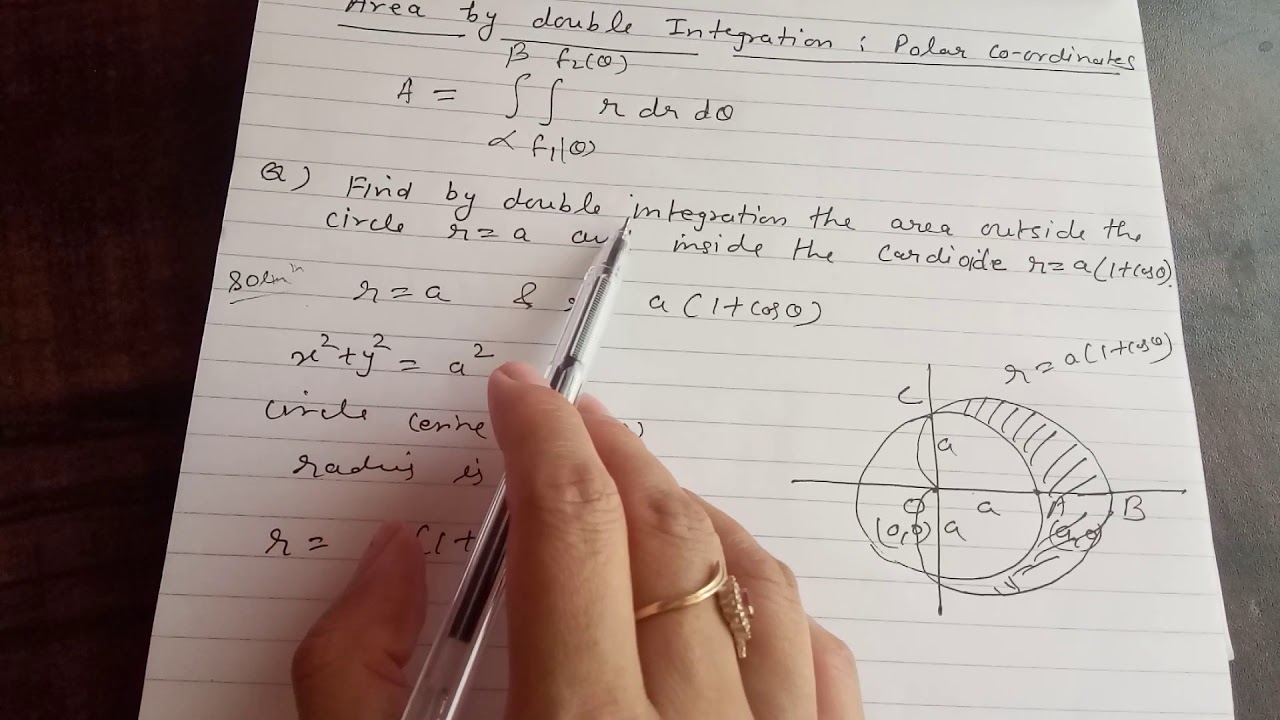 Area by double Integration : Polar co-ordinates
A = ∫∫ r dr dθ
β f₂(θ)
α f₁(θ)
Q) Find by double integration the area outside the
circle r = a inside the cardioide r = a(1+cosθ).
Solnⁿ r = a & a(1+cosθ)
x² + y² = a²
circle
radius is
r = (1+
r = a(1+cosθ)
C
a
O a A B
(0,0) a (a,0)